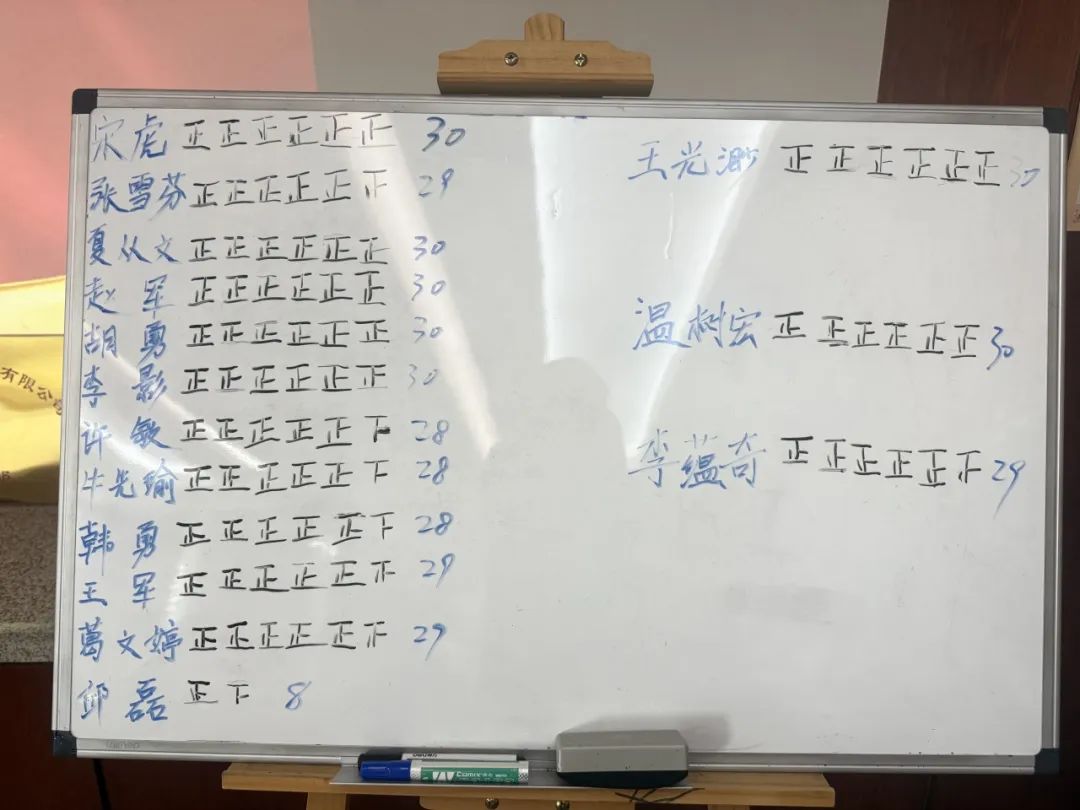 宋虎 正正正正正正 30
张雪芬 正正正正正正 29
夏从文 正正正正正正 30
赵军 正正正正正正 30
胡勇 正正正正正正 30
李影 正正正正正正 30
许敏 正正正正正下 28
牛先瑜 正正正正正下 28
韩勇 正正正正正下 28
王军 正正正正正正 29
葛文婷 正正正正正正 29
邱磊 正下 8
王光渺 正正正正正正 30
温树宏 正正正正正正 30
李蕴奇 正正正正正正 29
有限公
Comix